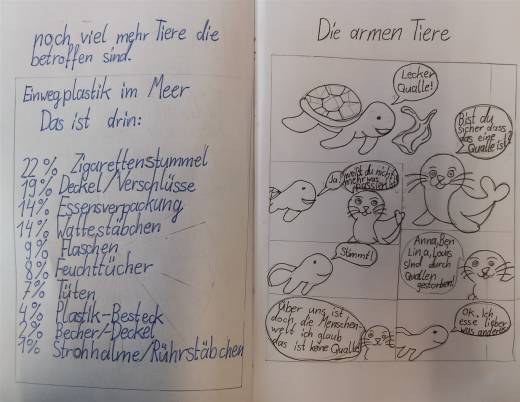 noch viel mehr Tiere die
betroffen sind.
Einwegplastik im Meer
Das ist drin:
22% Zigarettenstummel
19% Deckel/Verschlüsse
14% Essensverpackung
14% Wattestäbchen
9% Flaschen
8% Feuchttücher
7% Tüten
4% Plastik-Besteck
2% Becher/-Deckel
1% Strohhalme/Rührstäbchen
Die armen Tiere
Lecker
Qualle!
Bist du
sicher dass
das eine
Qualle ist?
Ja, weißt du nicht
mehr was
passiert ist?
Stimmt!
Anna, Ben
Lina, Louis
sind durch
Quallen
gestorben!
Über uns ist
doch die Menschen-
welt ich glaub
das ist keine Qualle!
Ok. Ich
esse lieber
was anderes